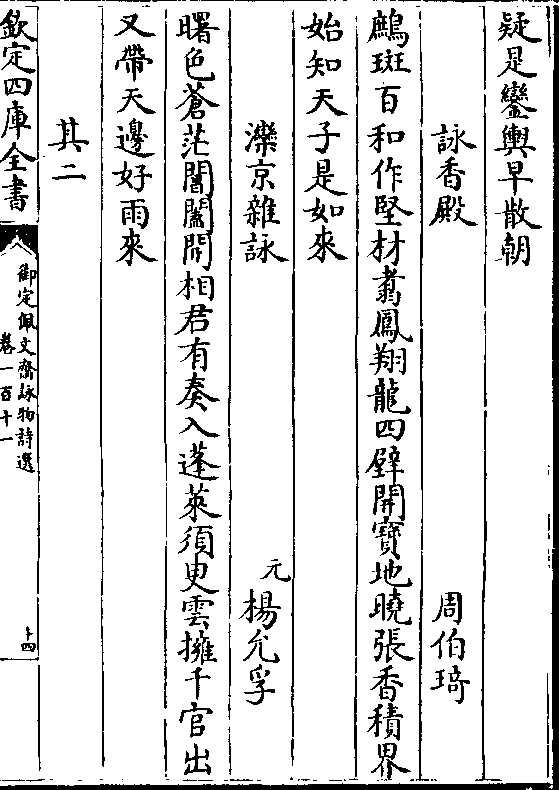 疑是鑾輿早散朝
詠香殿 周伯琦
鷓斑百和作堅材翥鳳翔龍四壁開寶地曉張香積界
始知天子是如來
灤京雜詠 元楊允孚
曙色蒼茫閶闔開相君有奏入蓬萊須臾雲擁千官出
又帶天邊好雨來
其二
欽定四庫全書
御定佩文齋詠物詩選
卷一百十一
十四